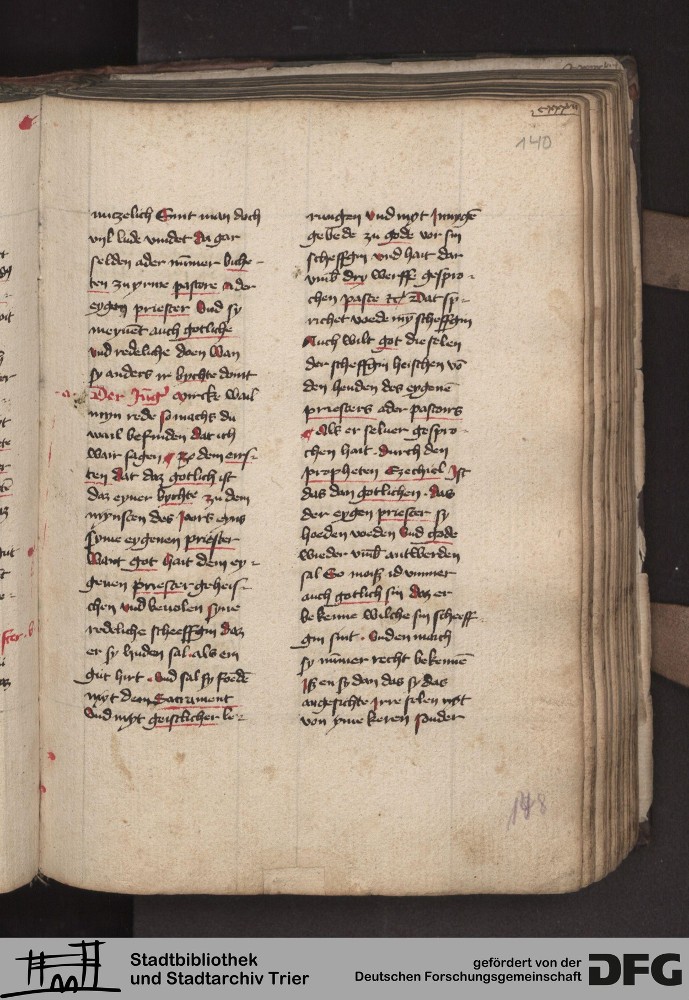 140
nutzelich Sint man doch
vijl lude vindet da gar
selden ader nummer biche-
ten zu yrme pastore ader
eygen priester Und sy
meynet auch gotliche
und redeliche doen Wan
sy anders ir bychte doint
Der Jung mircke wail
myn rede so machs du
wail befinden dat ich
wair sagen zo dem ers-
ten dat daz gotlich ist
daz eyner bychte zu dem
mynsten des Jaers eyns
syme eygenen priester
Want got hait dem ey-
genen priester geheis-
chen und bevolen syne
redeliche scheeffgin daz
er sy huden sal als ein
gut hirt Und sal sy foedē
myt dem Sacrament
Und myt geistlicher le-
rungen und myt Innygē
gebede zu gode vor sin
scheffgin und hait dar
umb dry werff gespro-
chen pasce Dat sp-
richet weide myn scheffgin
Auch wilt got die selen
der scheffgin heischen vō
den henden des eygenē
priesters ader pastoirs
Als er selver gespro-
chen hait durch den
propheten Ezechiel Ist
das dan gotlichen das
der eygen priester sy
hoeden woeden Und gode
wieder umb antwerden
sal So moiß id ummer
auch gotlich sin daz er
bekenne wilche sin scheeff-
gin sint Und en mach
sy nummer recht bekennē
Iß en sy dan das sy das
angesichte Irre selen myt
von yme keren sonder
148
Stadtbibliothek
und Stadtarchiv Trier
gefördert von der
Deutschen Forschungsgemeinschaft
DFG